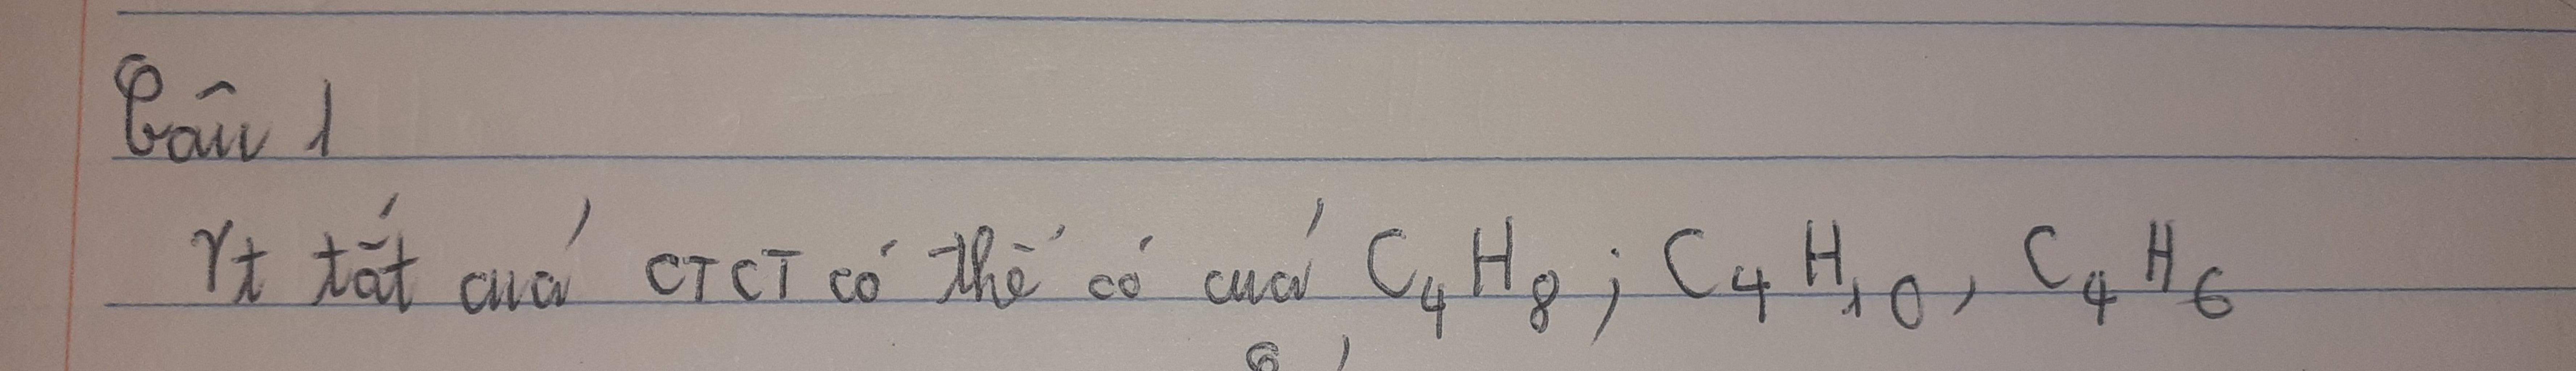 Câu 1
Vt tất cuả CTCT có thể có cuả C₄H₈; C₄H₁₀, C₄H₆